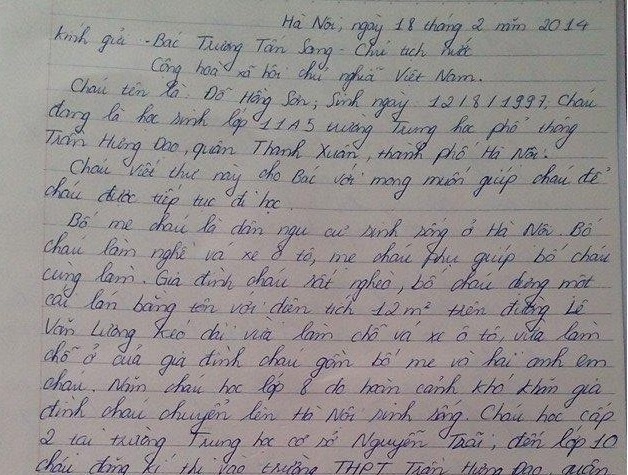 Hà Nội, ngày 18 tháng 2 năm 2014
Kính gửi - Bác Trương Tấn Sang - Chủ tịch nước
Cộng hoà xã hội chủ nghĩa Việt Nam.
Cháu tên là: Đỗ Hồng Sơn; Sinh ngày 12/8/1997. Cháu
đang là học sinh lớp 11A5 trường Trung học phổ thông
Trần Hưng Đạo, quận Thanh Xuân, thành phố Hà Nội.
Cháu viết thư này cho Bác với mong muốn giúp cháu để
cháu được tiếp tục đi học.
Bố mẹ cháu là dân ngụ cư sinh sống ở Hà Nội. Bố
cháu làm nghề vá xe ô tô, mẹ cháu phụ giúp bố cháu
cùng làm. Gia đình cháu rất nghèo, bố cháu dựng một
cái lán bằng tôn với diện tích 12m² trên đường Lê
Văn Lương kéo dài vừa làm chỗ vá xe ô tô, vừa làm
chỗ ở của gia đình cháu gồm bố mẹ và hai anh em
cháu. Năm cháu học lớp 8 do hoàn cảnh khó khăn gia
đình cháu chuyển lên Hà Nội sinh sống. Cháu học cấp
2 tại trường Trung học cơ sở Nguyễn Trãi, đến lớp 10
cháu đăng kí thi vào trường THPT Trần Hưng Đạo, quận